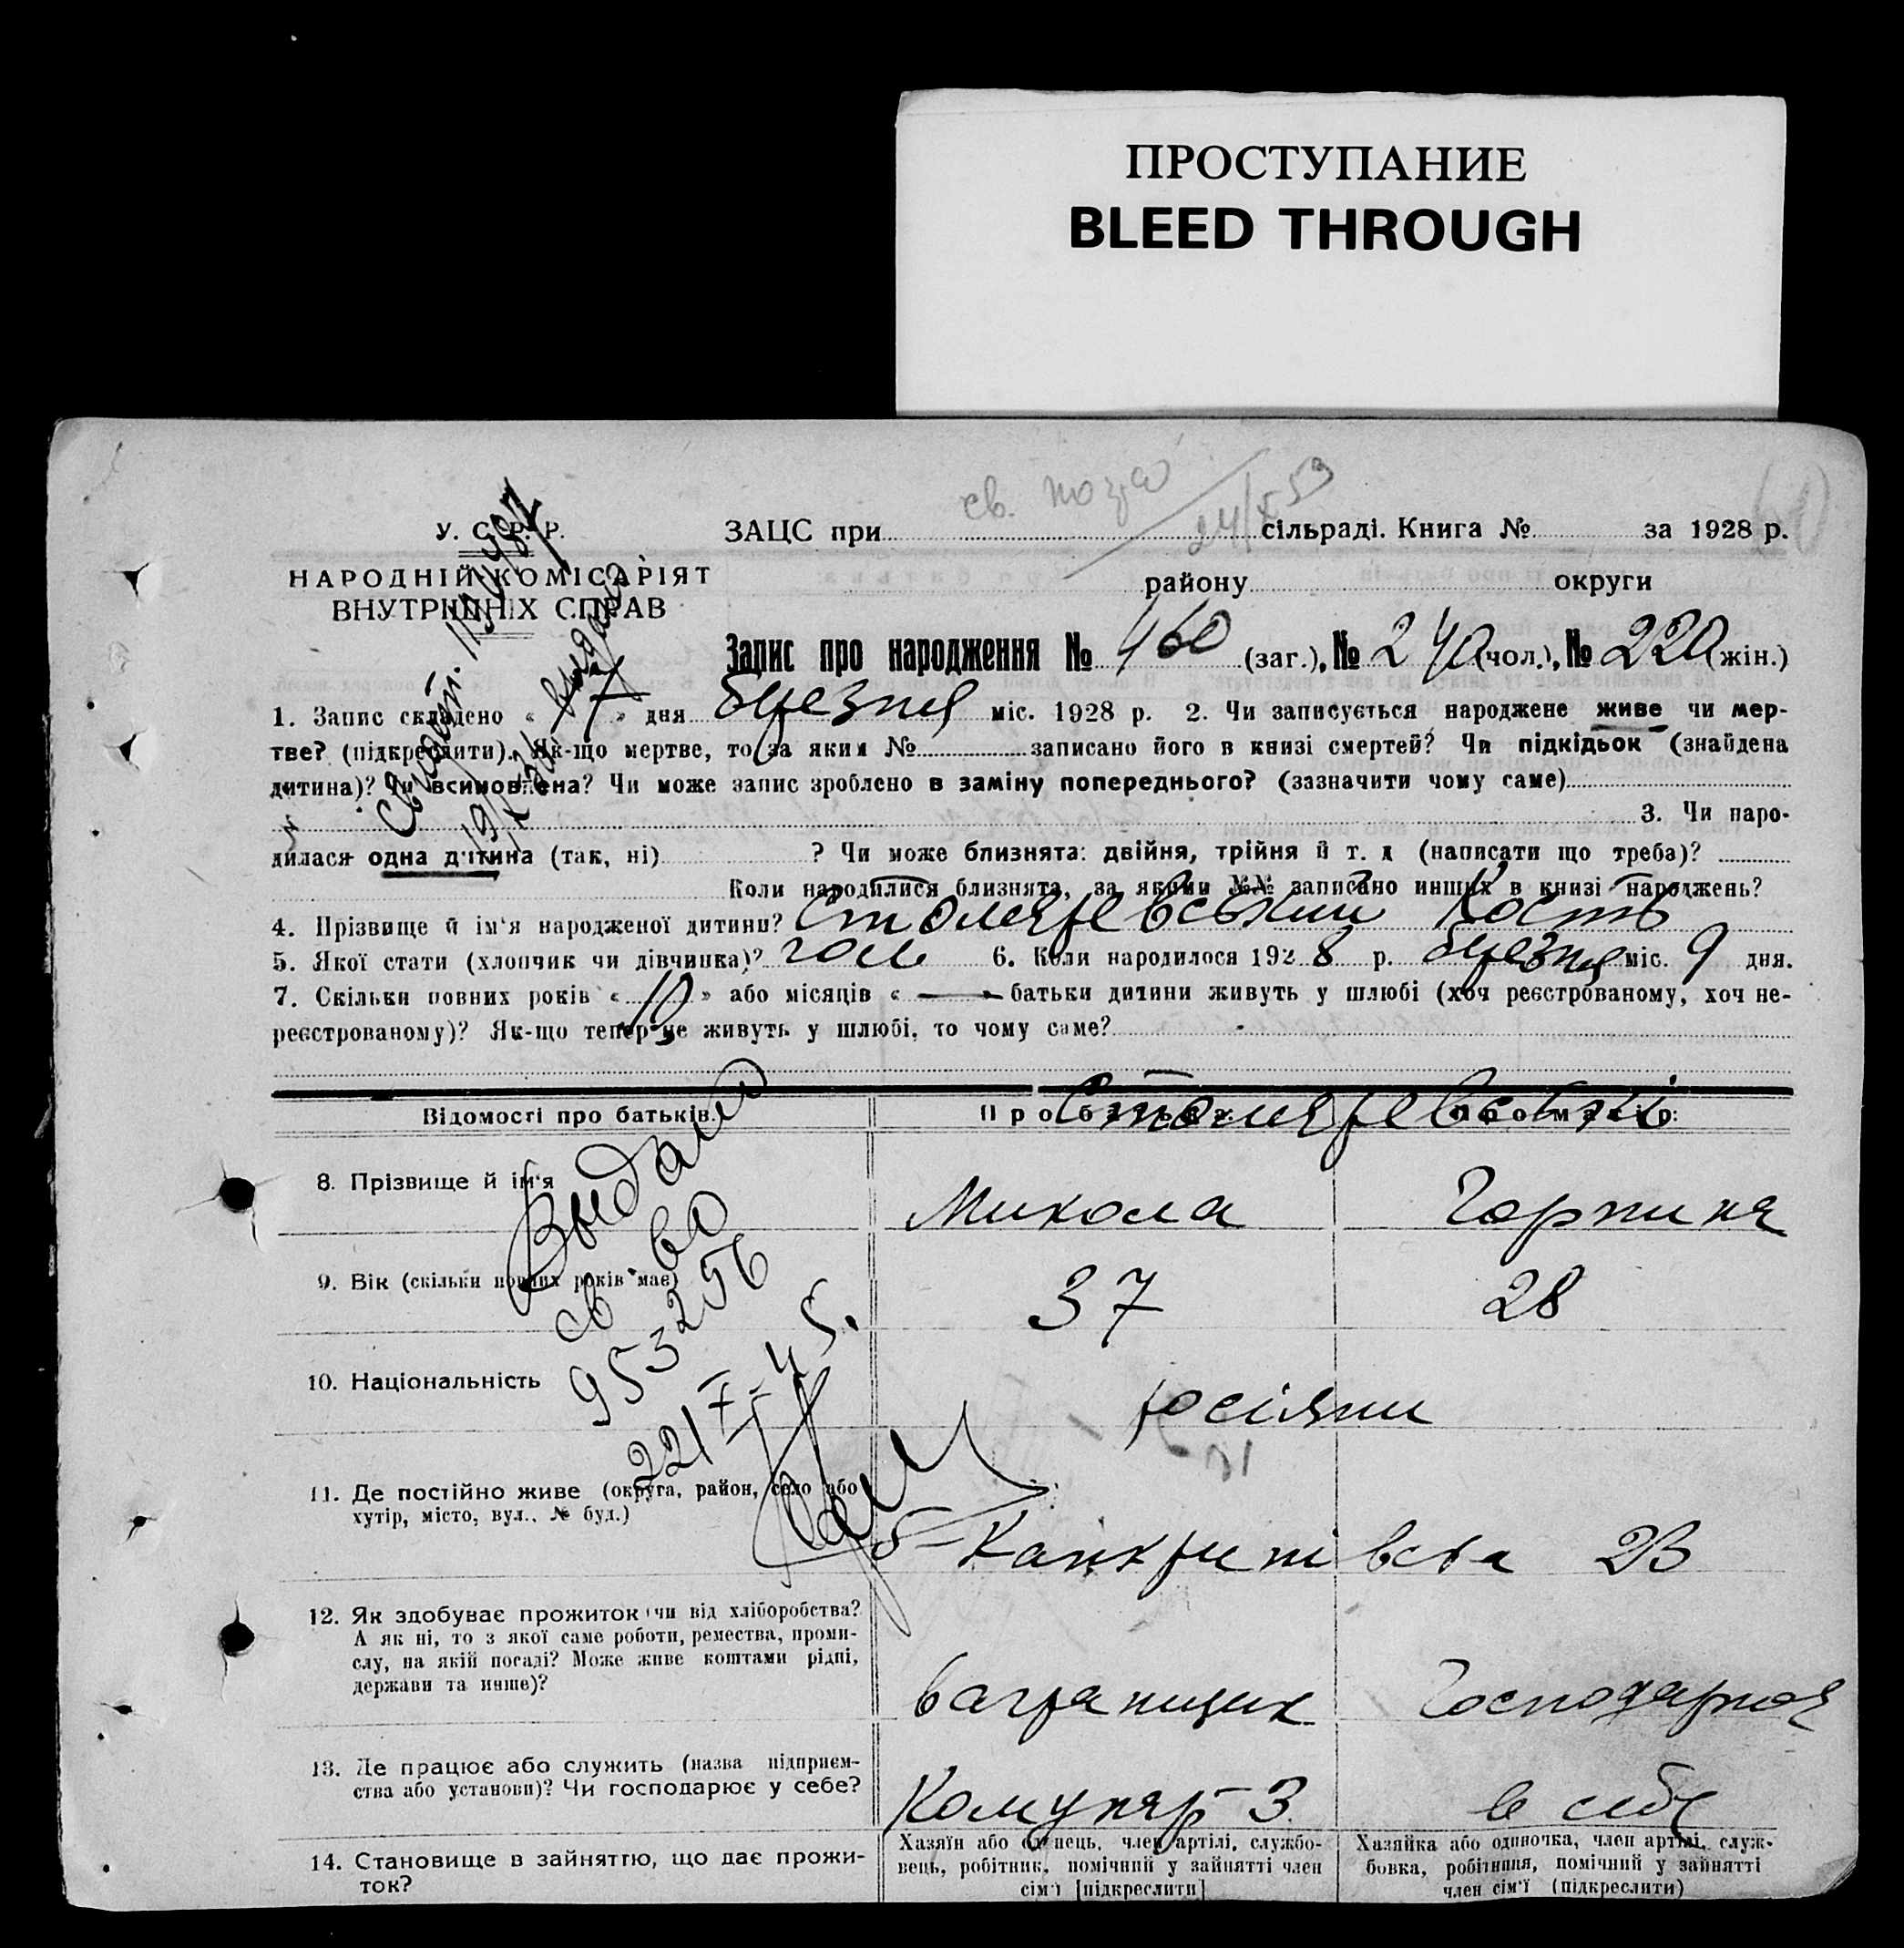 ПРОСТУПАНИЕ
BLEED THROUGH
св.
24/X 59
У. С. Р. Р.
ЗАЦС при сільраді. Книга № за 1928 р.
НАРОДНІЙ КОМІСАРІЯТ
ВНУТРІШНІХ СПРАВ
району округи
Запис про народження № 460 (заг.), № 240 (чол.), № 220 (жін.)
1. Запис складено « 17 » дня березня міс. 1928 р. 2. Чи записується народжене живе чи мер-
тве? (підкреслити). Як-що мертве, то за яким № записано його в книзі смертей? Чи підкідьок (знайдена
дитина)? Чи всиновлена? Чи може запис зроблено в заміну попереднього? (зазначити чому саме)
3. Чи наро-
дилася одна дитина (так, ні) ? Чи може близнята: двійня, трійня й т. д (написати що треба)?
Коли народилися близнята, за якими №№ записано инших в книзі народжень?
4. Прізвище й ім'я народженої дитини? Столяревський Кость
5. Якої стати (хлопчик чи дівчинка)? чол 6. Коли народилося 1928 р. березня міс. 9 дня.
7. Скільки повних років « 10 » або місяців « — » батьки дитини живуть у шлюбі (хоч реєстрованому, хоч не-
реєстрованому)? Як-що тепер не живуть у шлюбі, то чому саме?
Відомості про батьків: Про батька: Про матір:
Столяревські
8. Прізвище й ім'я Микола Горпина
Выдано
св 60
953256
221 V-45.
9. Вік (скільки повних років має) 37 28
10. Національність росіяни
11. Де постійно живе (округа, район, село або
хутір, місто, вул., № буд.)
23
12. Як здобуває прожиток чи від хліборобства?
А як ні, то з якої саме роботи, ремества, проми-
слу, на якій посаді? Може живе коштами рідні,
держави та инше)?
вагранщик Господарная
13. Де працює або служить (назва підприєм-
ства або установи)? Чи господарює у себе?
Комунар З. в себе
14. Становище в зайняттю, що дає прожи-
ток?
Хазяїн або одинець, член артілі, службо-
вець, робітник, помічний у зайнятті член
сім'ї [підкреслити]
Хазяйка або одиночка, член артілі, служ-
бовка, робітниця, помічний у зайнятті
член сім'ї (підкреслити)